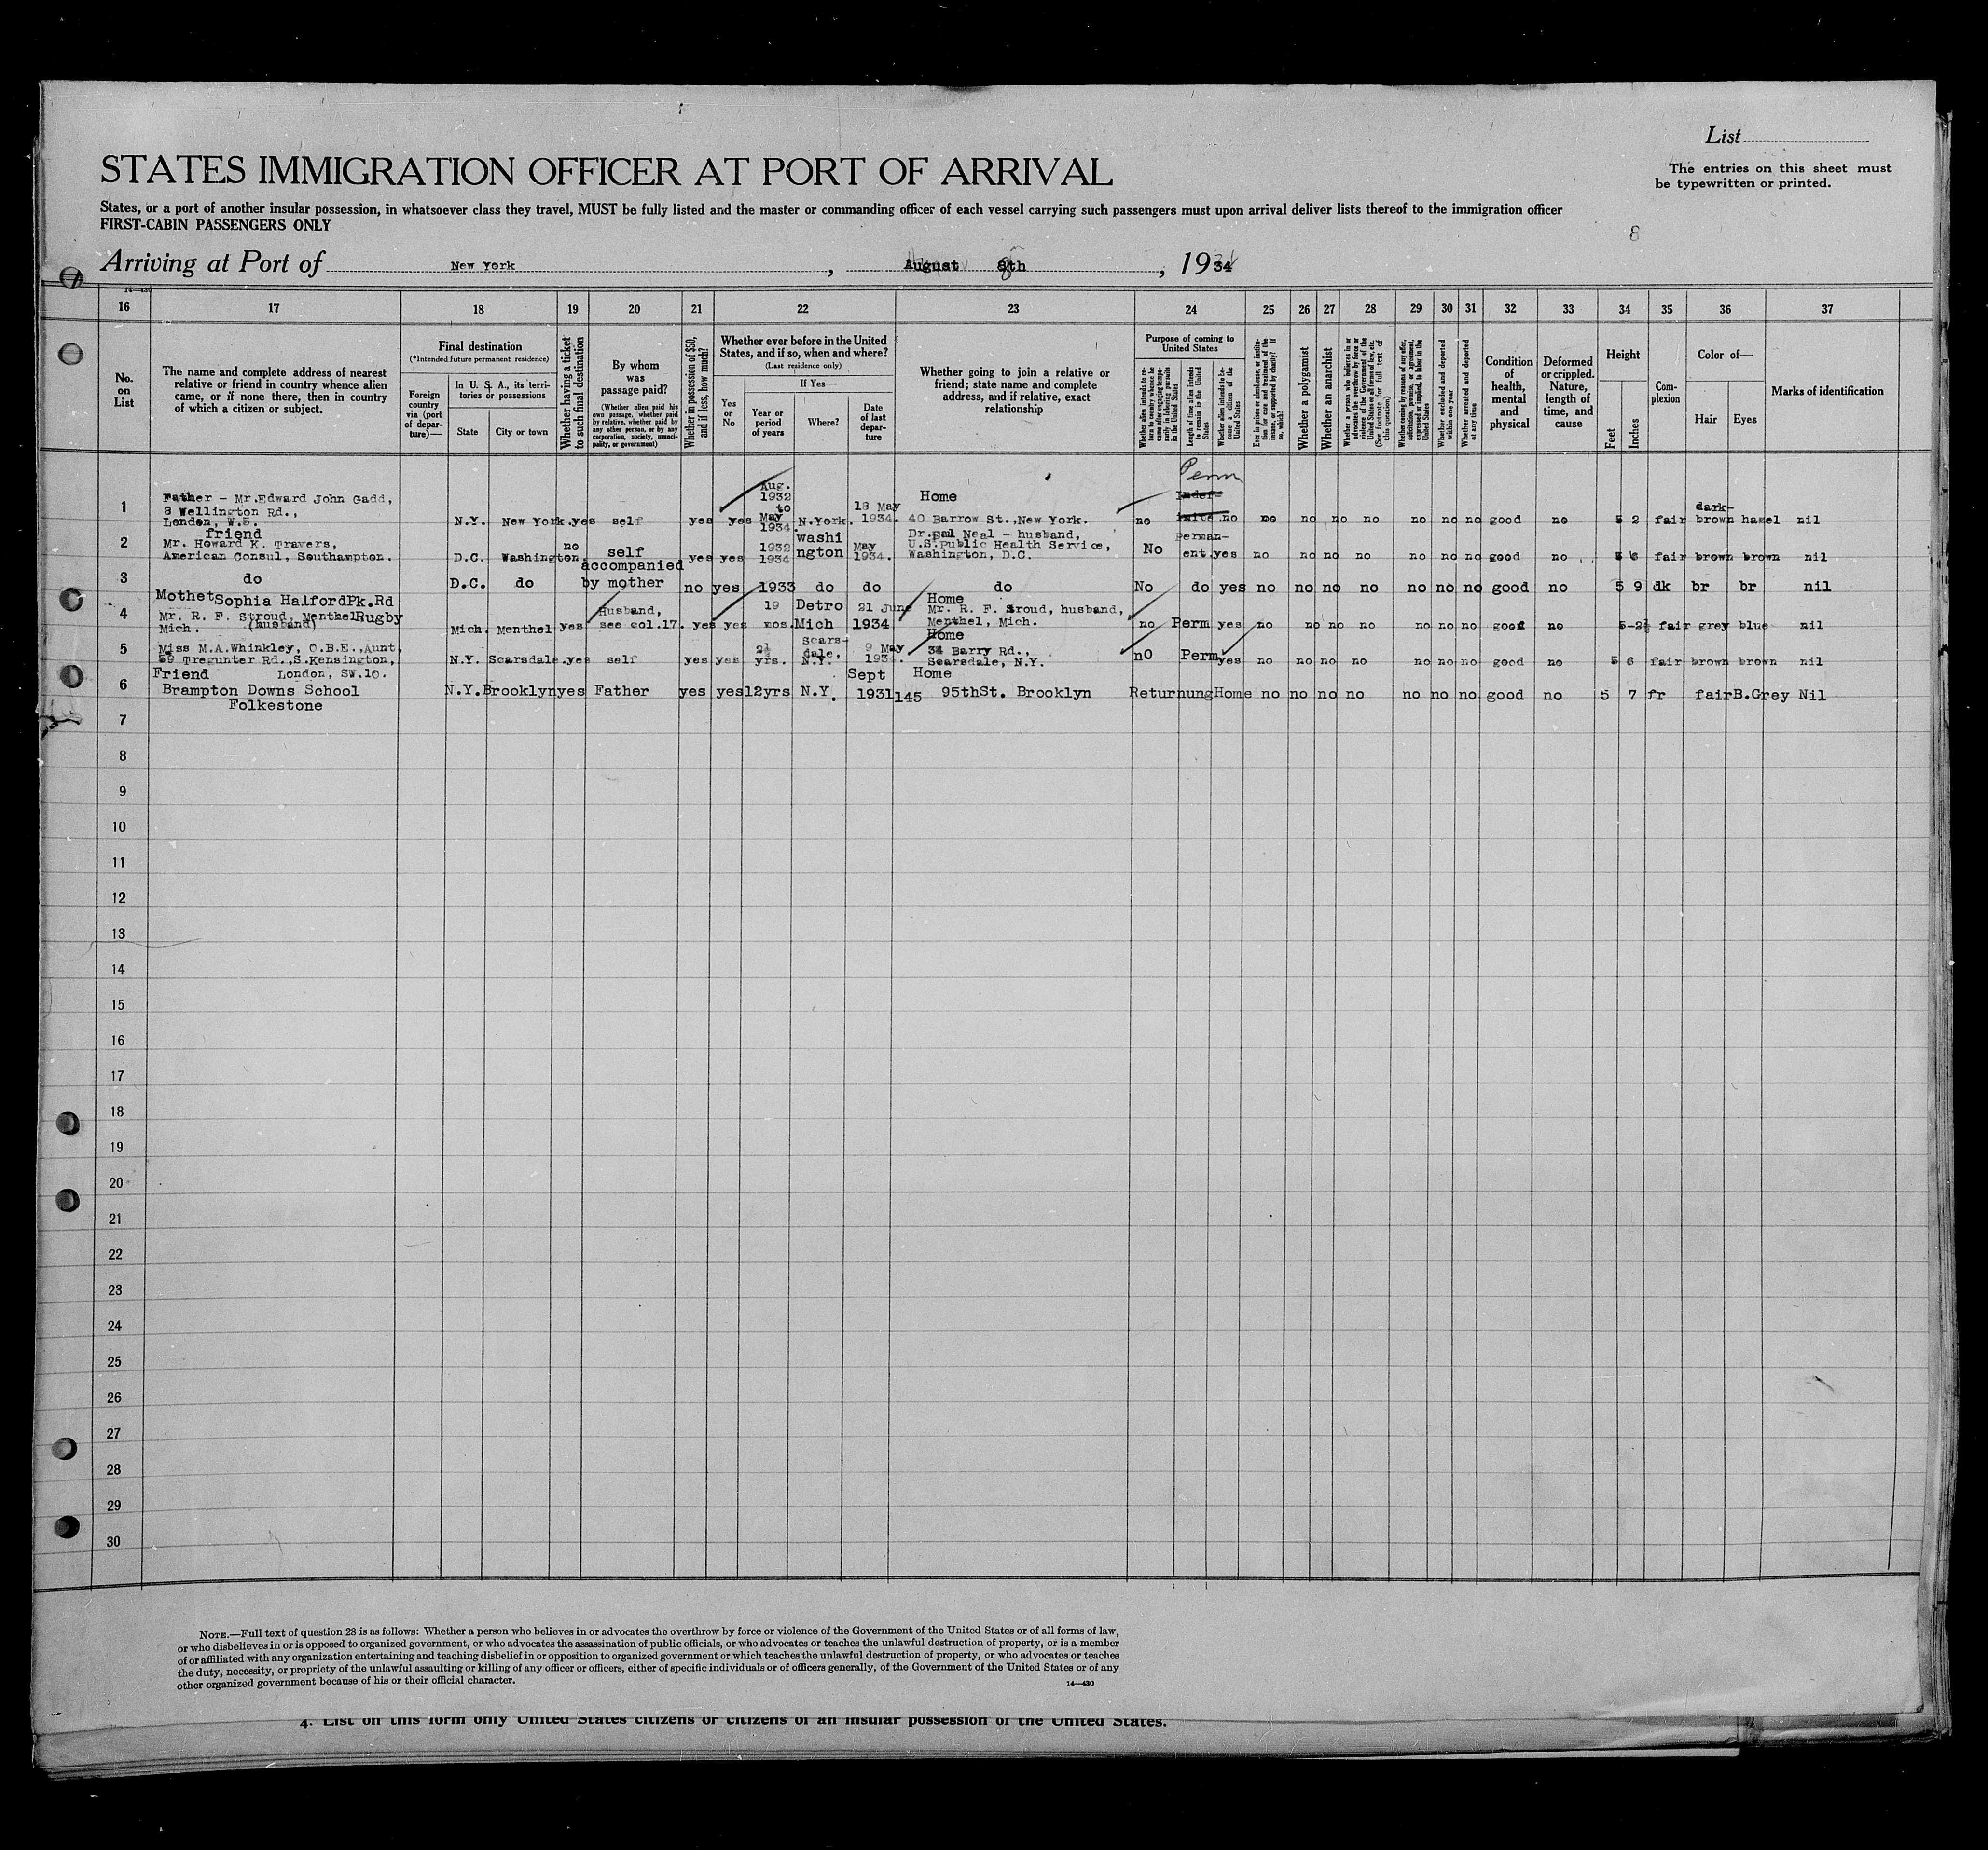 List
STATES IMMIGRATION OFFICER AT PORT OF ARRIVAL
The entries on this sheet must
be typewritten or printed.
States, or a port of another insular possession, in whatsoever class they travel, MUST be fully listed and the master or commanding officer of each vessel carrying such passengers must upon arrival deliver lists thereof to the immigration officer
FIRST-CABIN PASSENGERS ONLY
8
Arriving at Port of New York, August 8th, 1934
14—430
16 17 18 19 20 21 22 23 24 25 26 27 28 29 30 31 32 33 34 35 36 37
No. on List
The name and complete address of nearest relative or friend in country whence alien came, or if none there, then in country of which a citizen or subject.
Final destination
(*Intended future permanent residence)
Foreign country via (port of departure)—
In U. S. A., its territories or possessions
State
City or town
Whether having a ticket to such final destination
By whom was passage paid?
(Whether alien paid his own passage, whether paid by relative, whether paid by any other person, or by any corporation, society, municipality, or government)
Whether in possession of $50, and if less, how much?
Whether ever before in the United States, and if so, when and where?
(Last residence only)
Yes or No
If Yes—
Year or period of years
Where?
Date of last departure
Whether going to join a relative or friend; state name and complete address, and if relative, exact relationship
Purpose of coming to United States
Whether alien intends to return to country whence he came after engaging temporarily in laboring pursuits in the United States
Length of time alien intends to remain in the United States
Whether alien intends to become a citizen of the United States
Ever in prison or almshouse, or institution for care and treatment of the insane, or supported by charity? If so, which?
Whether a polygamist
Whether an anarchist
Whether a person who believes in or advocates the overthrow by force or violence of the Government of the United States or all forms of law, etc. (See footnote for full text of this question)
Whether coming by reason of any offer, solicitation, promise, or agreement, expressed or implied, to labor in the United States
Whether excluded and deported within one year
Whether arrested and deported at any time
Condition of health, mental and physical
Deformed or crippled. Nature, length of time, and cause
Height
Feet
Inches
Complexion
Color of—
Hair
Eyes
Marks of identification
1 Father - Mr. Edward John Gadd, 8 Wellington Rd., London, W.5. N.Y. New York. yes self yes yes Aug. 1932 to May 1934. N.York. 18 May 1934. Home 40 Barrow St., New York. no Perm Indef-inite no no no no no no no no good no 5 2 fair dark-brown hazel nil
2 friend Mr. Howard K. Travers, American Consul, Southampton. D.C. Washington. no self yes yes 1932 1934 washington May 1934. Dr. Neal - husband, U.S. Public Health Service, Washington, D.C. No Perman-ent. yes no no no no no no no good no 5 6 fair brown brown nil
3 do D.C. do accompanied by mother no yes 1933 do do do No do yes no no no no no no no good no 5 9 dk br br nil
4 Mothet Sophia HalfordPk.Rd Rugby Mr. R. F. Stroud, Menthel Mich. (husband) Mich. Menthel yes Husband, see col.17. yes yes 19 mos. Detro Mich 21 June 1934 Home Mr. R. F. Stroud, husband, Menthel, Mich. no Perm yes no no no no no no no good no 5-2½ fair grey blue nil
5 Miss M.A.Whinkley, O.B.E., Aunt, 59 Tregunter Rd., S.Kensington, London, SW.10. N.Y. Scarsdale. yes self yes yes 2½ yrs. Scars-dale, N.Y. 9 May 193 . Home 34 Barry Rd., Scarsdale, N.Y. nO Perm yes no no no no no no no good no 5 6 fair brown brown nil
6 Friend Brampton Downs School Folkestone N.Y. Brooklyn yes Father yes yes 12yrs N.Y. Sept 1931 Home 145 95thSt. Brooklyn Returnung Home no no no no no no no good no 5 7 fr fair B.Grey Nil
7
8
9
10
11
12
13
14
15
16
17
18
19
20
21
22
23
24
25
26
27
28
29
30
NOTE.—Full text of question 28 is as follows: Whether a person who believes in or advocates the overthrow by force or violence of the Government of the United States or of all forms of law,
or who disbelieves in or is opposed to organized government, or who advocates the assassination of public officials, or who advocates or teaches the unlawful destruction of property, or is a member
of or affiliated with any organization entertaining and teaching disbelief in or opposition to organized government or which teaches the unlawful destruction of property, or who advocates or teaches
the duty, necessity, or propriety of the unlawful assaulting or killing of any officer or officers, either of specific individuals or of officers generally, of the Government of the United States or of any
other organized government because of his or their official character.
14—430
4. List on this form only United States citizens or citizens of an insular possession of the United States.